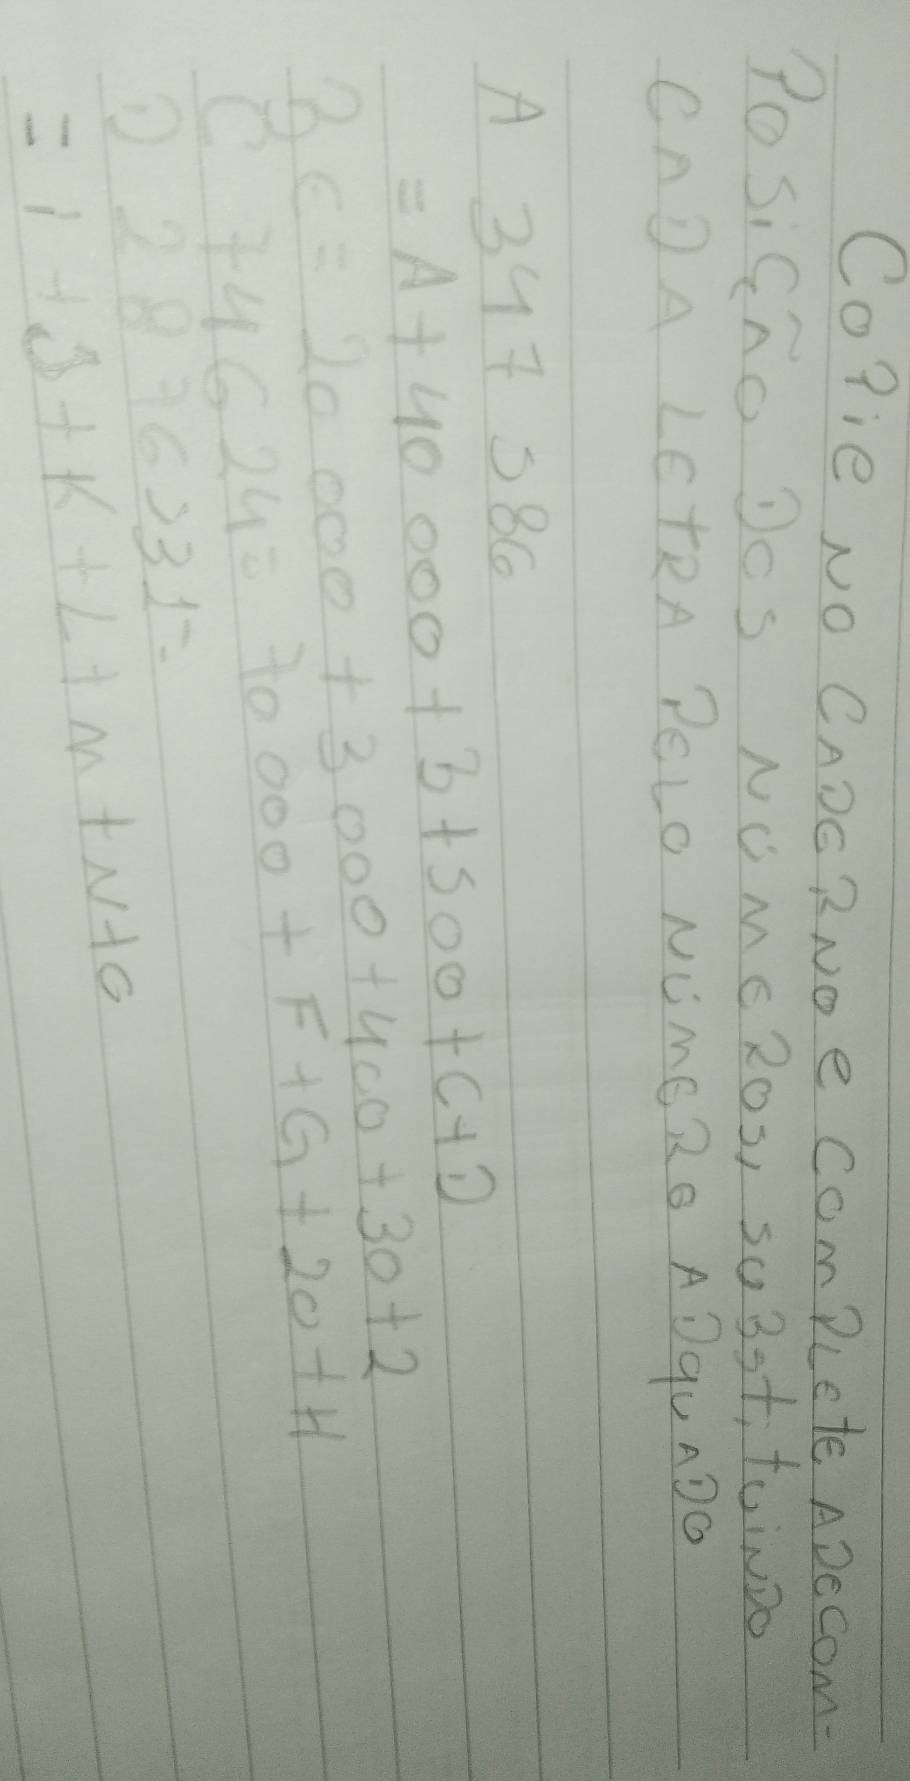 Copie no cADERNO e ComPLETE A DECOM-
POSIÇÃO DOS NÚMEROS, SUBSTITUINDO
CADA LETRA PELO NÚMERO ADQUADO
A 347 586
= A + 40 000 + B + 500 + C + D
B E = 20 000 + 3 000 + 400 + 30 + 2
C 74 624 = 70 000 + F + G + 20 + H
D 2 8 76 531 =
= I + J + K + L + M + N + O